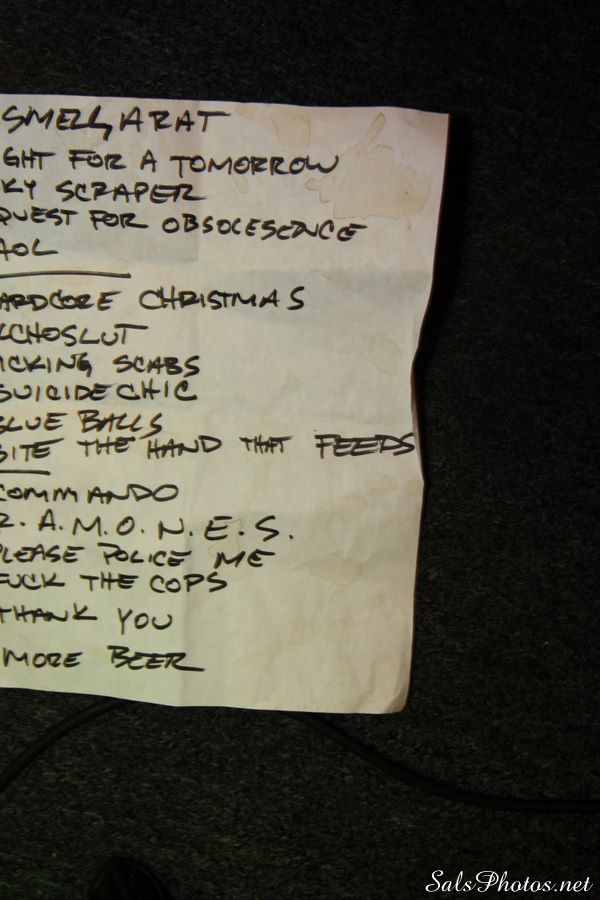 SMELL A RAT
GHT FOR A TOMORROW
KY SCRAPER
QUEST FOR OBSOLESCENCE
AOL
ARDCORE CHRISTMAS
LCHOSLUT
ICKING SCABS
SUICIDE CHIC
BLUE BALLS
BITE THE HAND THAT FEEDS
COMMANDO
R.A.M.O.N.E.S.
PLEASE POLICE ME
FUCK THE COPS
THANK YOU
MORE BEER
SalsPhotos.net